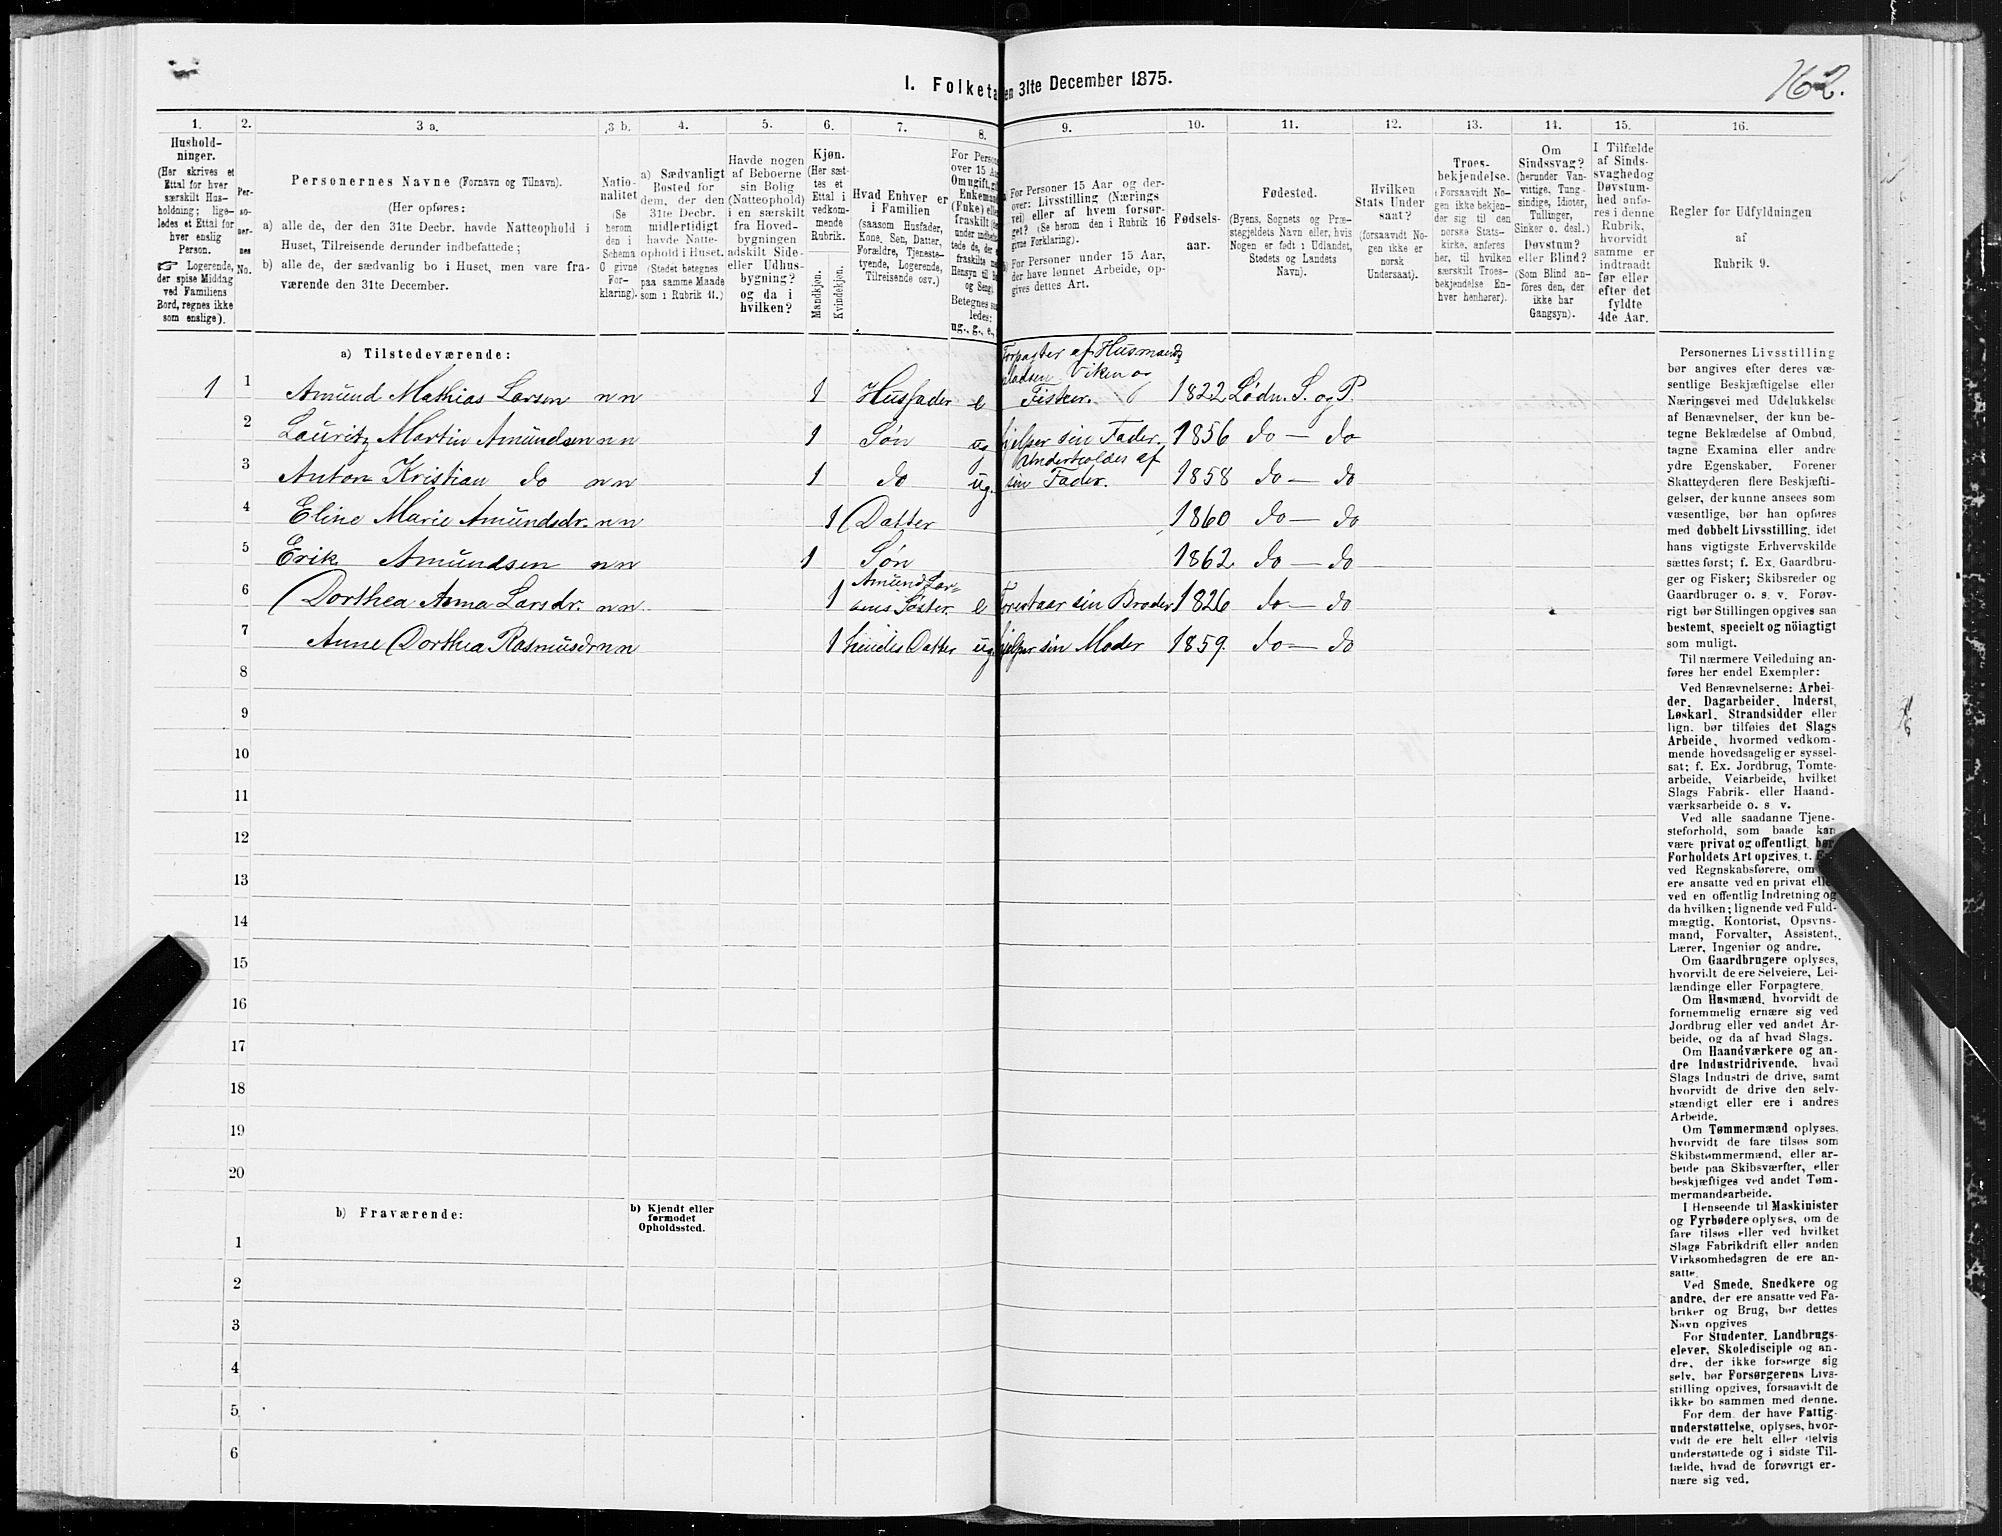 162.
I. Folketa en 31te December 1875.
1. 2. 3 a. 3 b. 4. 5. 6. 7. 8. 9. 10. 11. 12. 13. 14. 15. 16.
Hushold-
ninger.
(Her skrives et
Ettal for hver
særskilt Hus-
holdning; lige-
ledes et Ettal for
hver enslig
Person.
☞ Logerende,
der spise Middag
ved Familiens
Bord, regnes ikke
som enslige).
Per-
so-
ner-
nes
No.
Personernes Navne (Fornavn og Tilnavn).
(Her opføres:
a) alle de, der den 31te Decbr. havde Natteophold i
Huset, Tilreisende derunder indbefattede;
b) alle de, der sædvanlig bo i Huset, men vare fra-
værende den 31te December.
Natio-
nalitet
(Se
herom
den i
Schema
G givne
For-
klaring).
a) Sædvanligt
Bosted for
dem, der den
31te Decbr.
midlertidigt
havde Natte-
ophold i Huset.
(Stedet betegnes
paa samme Maade
som i Rubrik 11.)
Havde nogen
af Beboerne
sin Bolig
(Natteophold)
i en særskilt
fra Hoved-
bygningen
adskilt Side-
eller Udhus-
bygning?
og da i
hvilken?
Kjøn.
(Her sæt-
tes et
Ettal i
vedkom-
mende
Rubrik.
Mandkjøn.
Kvindekjøn.
Hvad Enhver er
i Familien
(saasom Husfader,
Kone, Søn, Datter,
Forældre, Tjeneste-
tyende, Logerende,
Tilreisende osv.)
For Person
over 15 Aa
Om ugift, gi
Enkemand
(Enke) elle
fraskilt
Betegnes s
ledes:
ug., g., e.,
For Personer 15 Aar og der-
over: Livsstilling (Nærings
vei) eller af hvem forsør-
get? (Se herom den i Rubrik 16
givne Forklaring).
For Personer under 15 Aar,
der have lønnet Arbeide, op-
gives dettes Art.
Fødsels-
aar.
Fødested.
(Byens, Sognets og Præ-
stegjeldets Navn eller, hvis
Nogen er født i Udlandet,
Stedets og Landets
Navn).
Hvilken
Stats Under
saat?
(forsaavidt No-
gen ikke er
norsk
Undersaat).
Troes-
bekjendelse.
(Forsaavidt No-
gen ikke bekjen-
der sig til den
norske Stats-
kirke, anføres
her, til hvilken
særskilt Troes-
bekjendelse En-
hver henhører).
Om
Sindssvag?
(herunder Van-
vittige, Tung-
sindige, Idioter,
Tullinger,
Sinker o. desl.)
Døvstum?
eller Blind?
(Som Blind an-
føres den, der
ikke har
Gangsyn).
I Tilfælde
af Sinds-
svaghed og
Døvstum-
hed anfø-
res i denne
Rubrik,
hvorvidt
samme er
indtraadt
før eller
efter det
fyldte
4de Aar.
Regler for Udfyldningen
af
Rubrik 9.
a) Tilstedeværende:
Forpagter af Husmands
pladsen Viken og
1 1 Amund Mathias Larsen n n 1 Husfader e Fisker. 1822 Lødn. S. og P.
2 Lauritz Martin Amundsen n n 1 Søn ug hjelper sin Fader. 1856 do — do
Underholdes af
3 Anton Kristian do n n 1 do ug. sin Fader. 1858 do — do
4 Eline Marie Amundsdr. n n 1 Datter 1860 do — do
5 Erik Amundsen n n 1 Søn 1862 do — do
Amund Lar-
6 Dorthea Anna Larsdr. n n 1 sens Søster e Forestaar sin Broder 1826 do — do
7 Anne Dorthea Rasmusdr n n 1 hendes Datter ug. hjelper sin Moder 1859. do — do
8
9
10
11
12
13
14
15
16
17
18
19
20
b) Fraværende:
b) Kjendt eller
formodet
Opholdssted.
1
2
3
4
5
6
Personernes Livsstilling
bør angives efter deres væ-
sentlige Beskjæftigelse eller
Næringsvei med Udelukkelse
af Benævnelser, der kun be-
tegne Beklædelse af Ombud,
tagne Examina eller andre
ydre Egenskaber. Forener
Skatteyderen flere Beskjæfti-
gelser, der kunne ansees som
væsentlige, bør han opføres
med dobbelt Livsstilling, idet
hans vigtigste Erhvervskilde
sættes først; f. Ex. Gaardbru-
ger og Fisker; Skibsreder og
Gaardbruger o. s. v. Forøv-
rigt bør Stillingen opgives saa
bestemt, specielt og nöiagtigt
som muligt.
Til nærmere Veiledning an-
føres her endel Exempler:
Ved Benævnelserne: Arbei-
der, Dagarbeider, Inderst,
Løskarl, Strandsidder eller
lign. bør tilføies det Slags
Arbeide, hvormed vedkom-
mende hovedsagelig er syssel-
sat; f. Ex. Jordbrug, Tomte-
arbeide, Veiarbeide, hvilket
Slags Fabrik- eller Haand-
værksarbeide o. s v.
Ved alle saadanne Tjene-
steforhold, som baade kan
være privat og offentligt, bør
Forholdets Art opgives, t. E
ved Regnskabsførere, om
ere ansatte ved en privat elle
ved en offentlig Indretning og
da hvilken; lignende ved Fuld-
mægtig, Kontorist, Opsyns-
mand, Forvalter, Assistent,
Lærer, Ingeniør og andre.
Om Gaardbrugere oplyses,
hvorvidt de ere Selveiere, Lei-
lændinge eller Forpagtere.
Om Husmænd, hvorvidt de
fornemmelig ernære sig ved
Jordbrug eller ved andet Ar-
beide, og da af hvad Slags.
Om Haandværkere og an-
dre Industridrivende, hvad
Slags Industri de drive, samt
hvorvidt de drive den selv-
stændigt eller ere i andres
Arbeide.
Om Tømmermænd oplyses,
hvorvidt de fare tilsøs som
Skibstømmermænd, eller ar-
beide paa Skibsværfter, eller
beskjæftiges ved andet Tøm-
mermandsarbeide.
I Henseende til Maskinister
og Fyrbødere oplyses, om de
fare tilsøs eller ved hvilket
Slags Fabrikdrift eller anden
Virksomhedsgren de ere an-
satte.
Ved Smede, Snedkere og
andre, der ere ansatte ved Fa-
briker og Brug, bør dettes
Navn opgives
For Studenter, Landbrugs-
elever, Skoledisciple og an-
dre, der ikke forsørge sig
selv, bør Forsørgerens Livs-
stilling opgives, forsaavidt de
ikke bo sammen med denne.
For dem, der have Fattig-
understøttelse, oplyses, hvor-
vidt de ere helt eller delvis
understøttede og i sidste Til-
fælde, hvad de forøvrigt er-
nære sig ved.